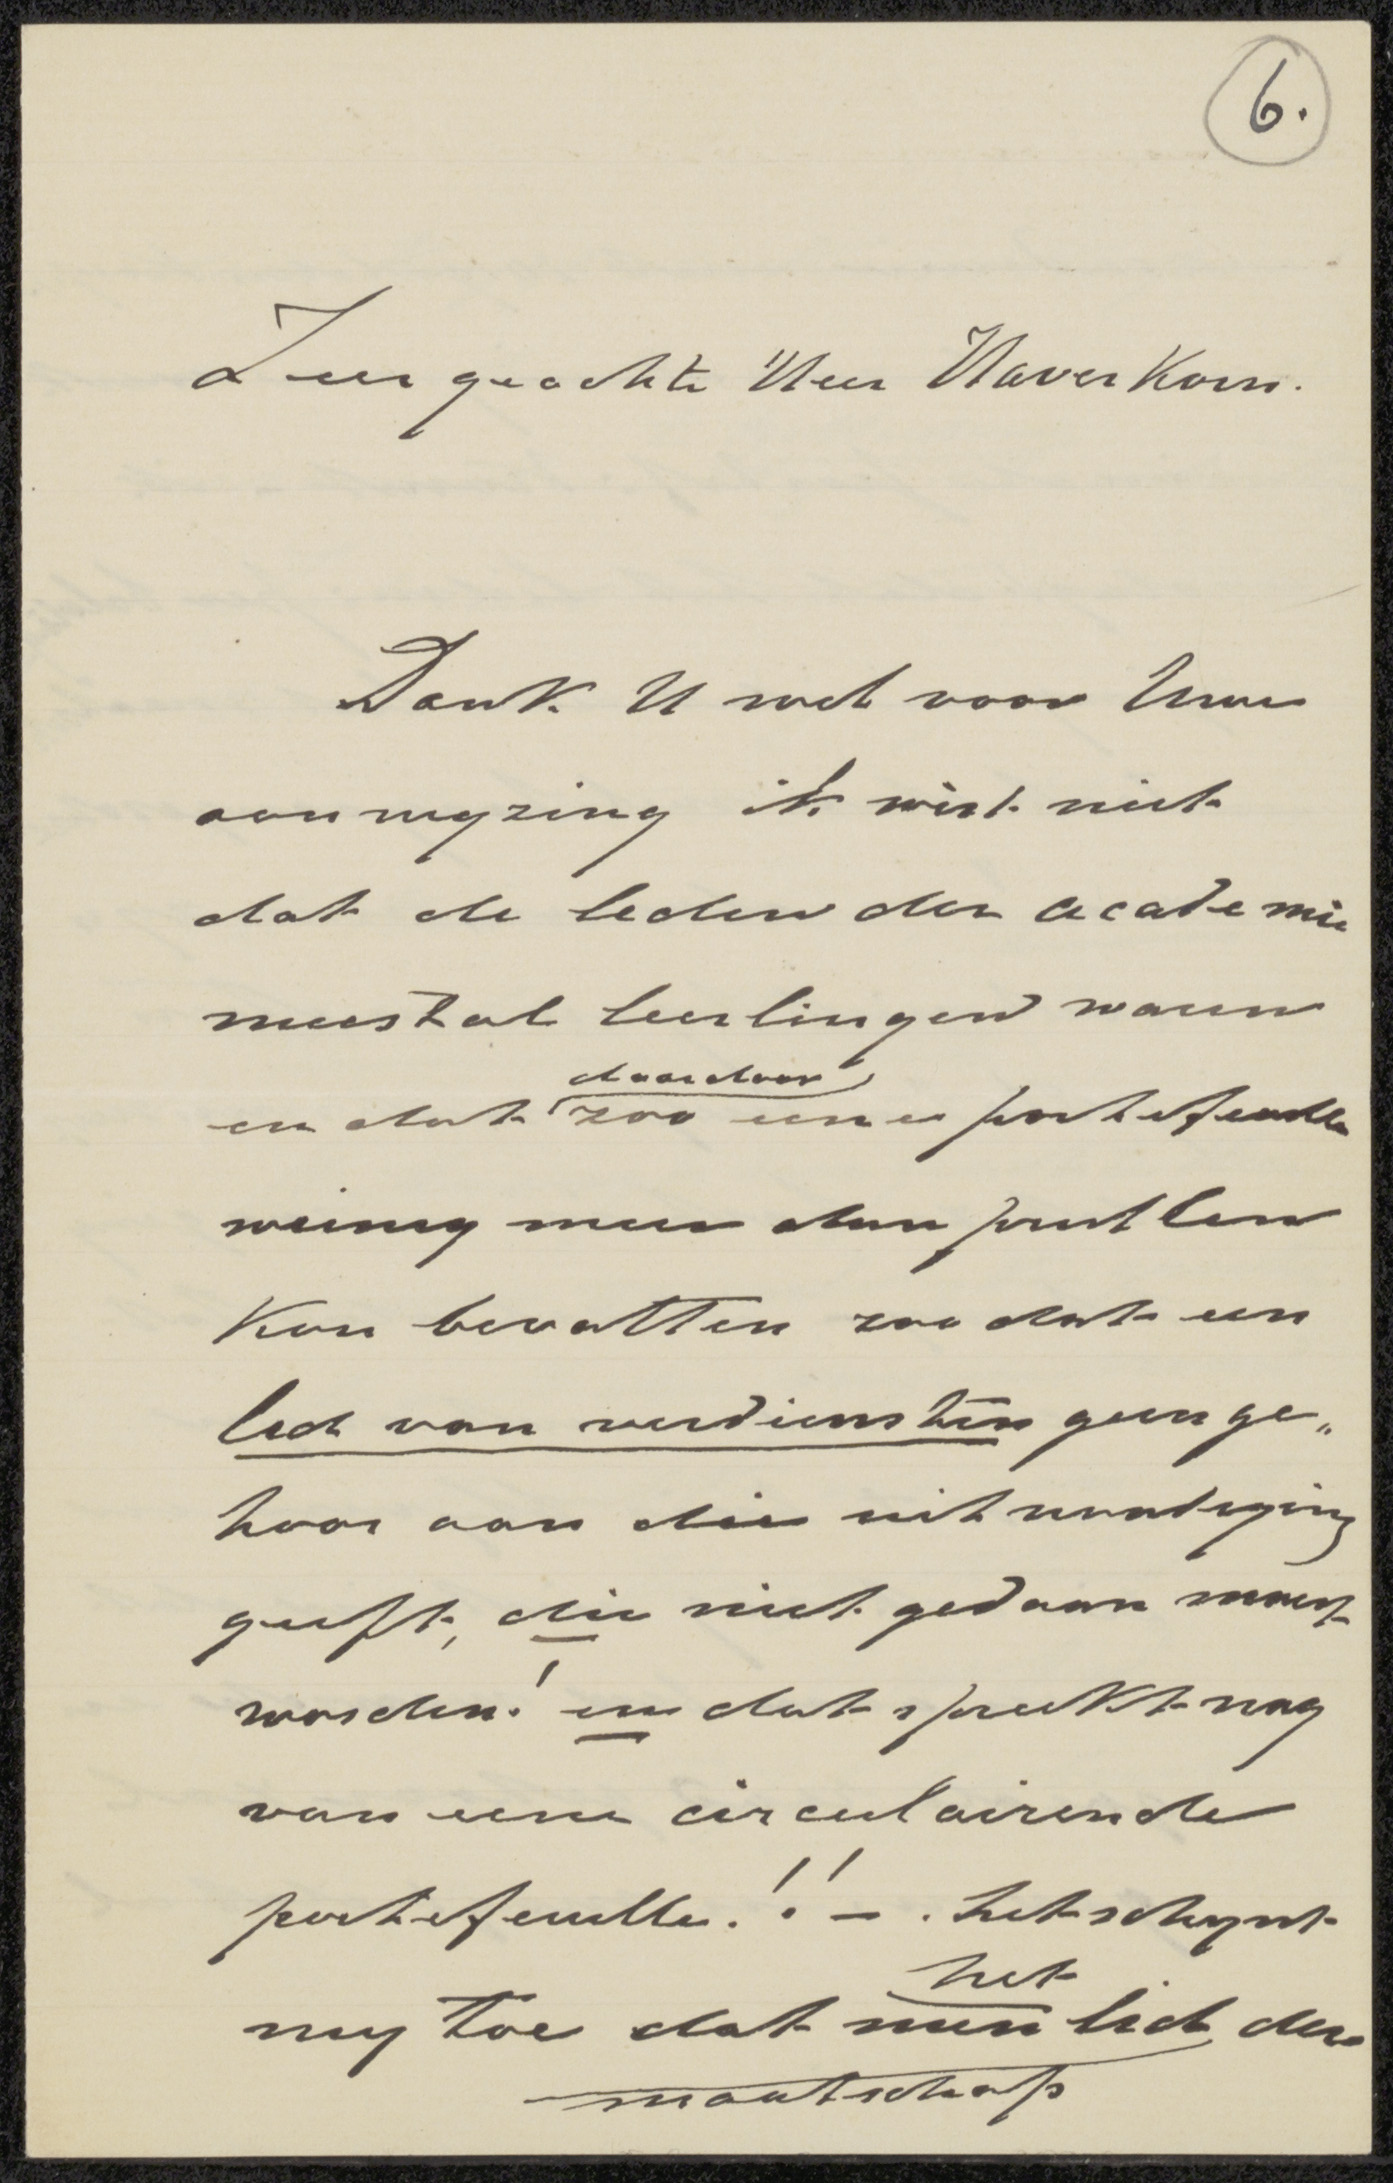 6.
Zeer geachte Heer Haverkorn.
Dank U wel voor Uwe
aanwyzing ik wist niet
dat de leden der academie
meestal leerlingen waren
daardoor
en dat zoo eene portefeuille
weinig meer dan prullen
kon bevatten zoo dat een
lid van verdiensten geen ge„
hoor aan die uitnoodiging
geeft, die niet gedaan moest
worden! en dat spreekt nog
van eene circulairende
portefeuille.!! – . het schynt
het
my toe dat men lid der
maatschap